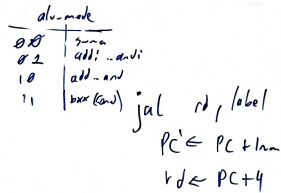 alu-mode
00 suma
01 addi..andi
10 add-and
11 bxx (cond)
jal rd, label
PC' ← PC + Imm
rd ← PC+4